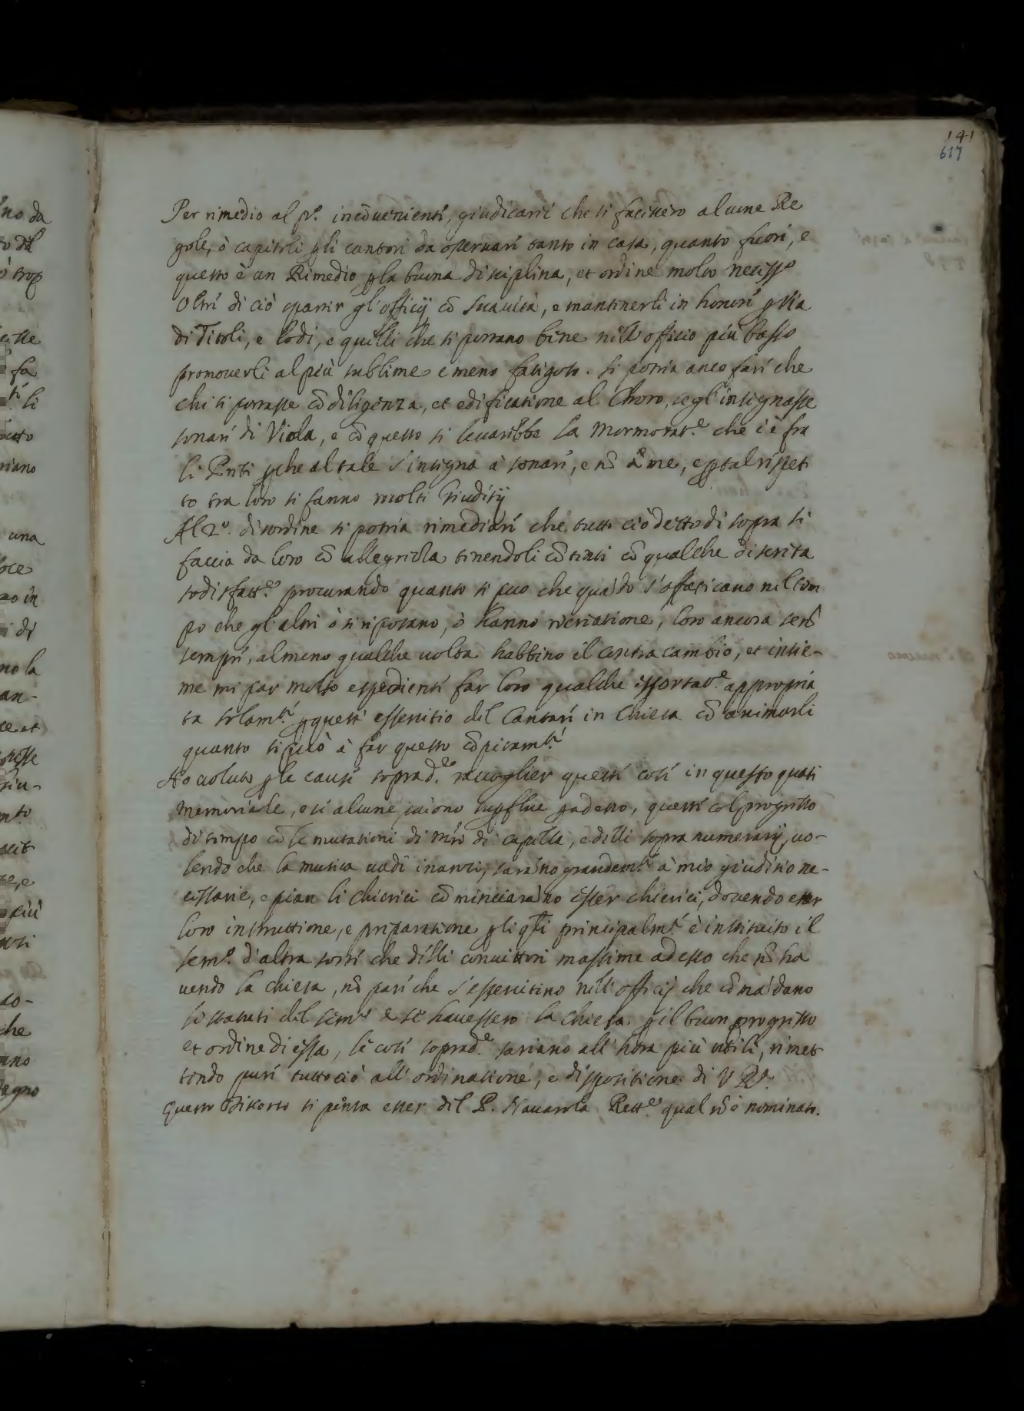 141
617
Per rimedio al p.º incõuenienti, giudicarei che si facessero alcune Re
gole, ò capitoli p li cantori da osseruarsi tanto in casa, quanto fuori, e
questo è un Rimedio p la buona disciplina, et ordine molto necess.º
Oltre di ciò gl'officij cõ suauità, e mantenerli in honore p uia
di Titoli, e lodi, e quelli che si portano bene nell'officio più basso
promouerli al più sublime e meno fatigoso. si potria anco fare che
chi si portasse cõ diligenza, et edificatione al Choro, segl'insegnasse
sonare di Viola, e cõ questo si leuarebbe la Mormorat.ne che c'è fra
li Putti p che al tale s'insegna à sonare, e nõ à me, e p tal rispet
to tra loro si fanno molti Giuditij
Al 2.º disordine si potria rimediare che tutto ciò detto di sopra si
faccia da loro cõ allegrezza tenendoli cõtenti cõ qualche discreta
sodisfatt.ne procurando quanto si può che quãdo s'affaticano nel tem
po che gl'altri ò si riposano, ò hanno recreatione, loro ancora se nõ
sempre, almeno qualche uolta habbino il contracambio, et insie-
me mi par molto espediente far loro qualche essortat.ne appropria
ta solam.te p questo essercitio del Cantare in Chiesa cõ animarli
quanto si può à far questo cõ piam.te
Ho uoluto p le cause soprad.e raccoglier queste cose in questo quasi
Memoriale, e se alcune paiono supflue p adesso, queste col progresso
di tempo cõ le mutationi di mro di capella, e delli sopra numerarij, uo-
lendo che la musica uadi inanzi, sarãno grandem.te à mio giuditio ne-
cessarie, li chierici cõminciarãno esser chierici, douendo esser
loro instruttione, e preparatione p li q̃li principalm.te è instituito il
sem.º d'altra sorte che delli conuittori massime adesso che nõ ha
uendo la chiesa, nõ pare che s'essercitino nell'officij che cõmãdano
li statuti del sem.º e se hauessero la chiesa p il buon progresso
et ordine di essa, le cose soprad.e sariano all'hora più utili, rimet
tendo pure tutto ciò all'ordinatione, e dispositione di V. R.
Questo Discorso si pensa esser del P. Nauarola Rett.re qual nõ è nominato.